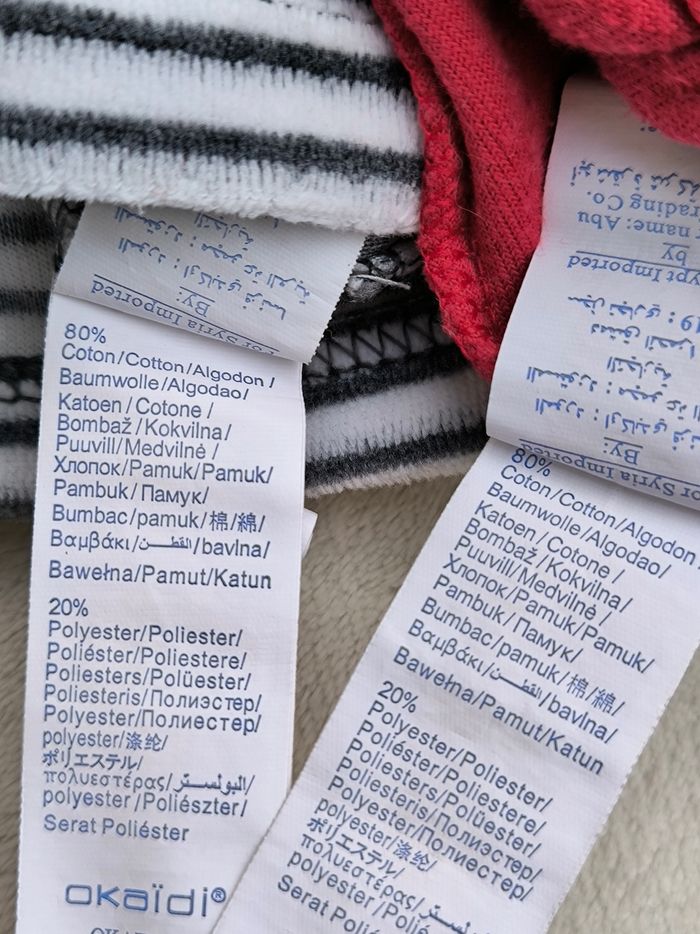 For Syria Imported
By:
80%
Coton/Cotton/Algodon/
Baumwolle/Algodao/
Katoen/Cotone/
Bombaž/Kokvilna/
Puuvill/Medvilnė/
Хлопок/Pamuk/Pamuk/
Pambuk/Памук/
Bumbac/pamuk/棉/綿/
Βαμβάκι/القطن/bavlna/
Bawełna/Pamut/Katun
20%
Polyester/Poliester/
Poliéster/Poliestere/
Poliesters/Polüester/
Poliesteris/Полиэстер/
Polyester/Полиестер/
polyester/涤纶/
ポリエステル/
πολυεστέρας/البوليستر/
polyester/Poliészter/
Serat Poliéster
okaïdi®
name: Abu
Trading Co.
Egypt Imported
by
For Syria Imported
By:
80%
Coton/Cotton/Algodon
Baumwolle/Algodao/
Katoen/Cotone/
Bombaž/Kokvilna/
Puuvill/Medvilnė/
Хлопок/Pamuk/Pamuk/
Pambuk/Памук/
Bumbac/pamuk/棉/綿/
Βαμβάκι/القطن/bavlna/
Bawełna/Pamut/Katun
20%
Polyester/Poliester/
Poliéster/Poliestere/
Poliesters/Polüester/
Poliesteris/Полиэстер/
Polyester/Полиестер/
polyester/涤纶/
ポリエステル/
πολυεστέρας/البوليستر/
polyester/Poliészter/
Serat Poliéster